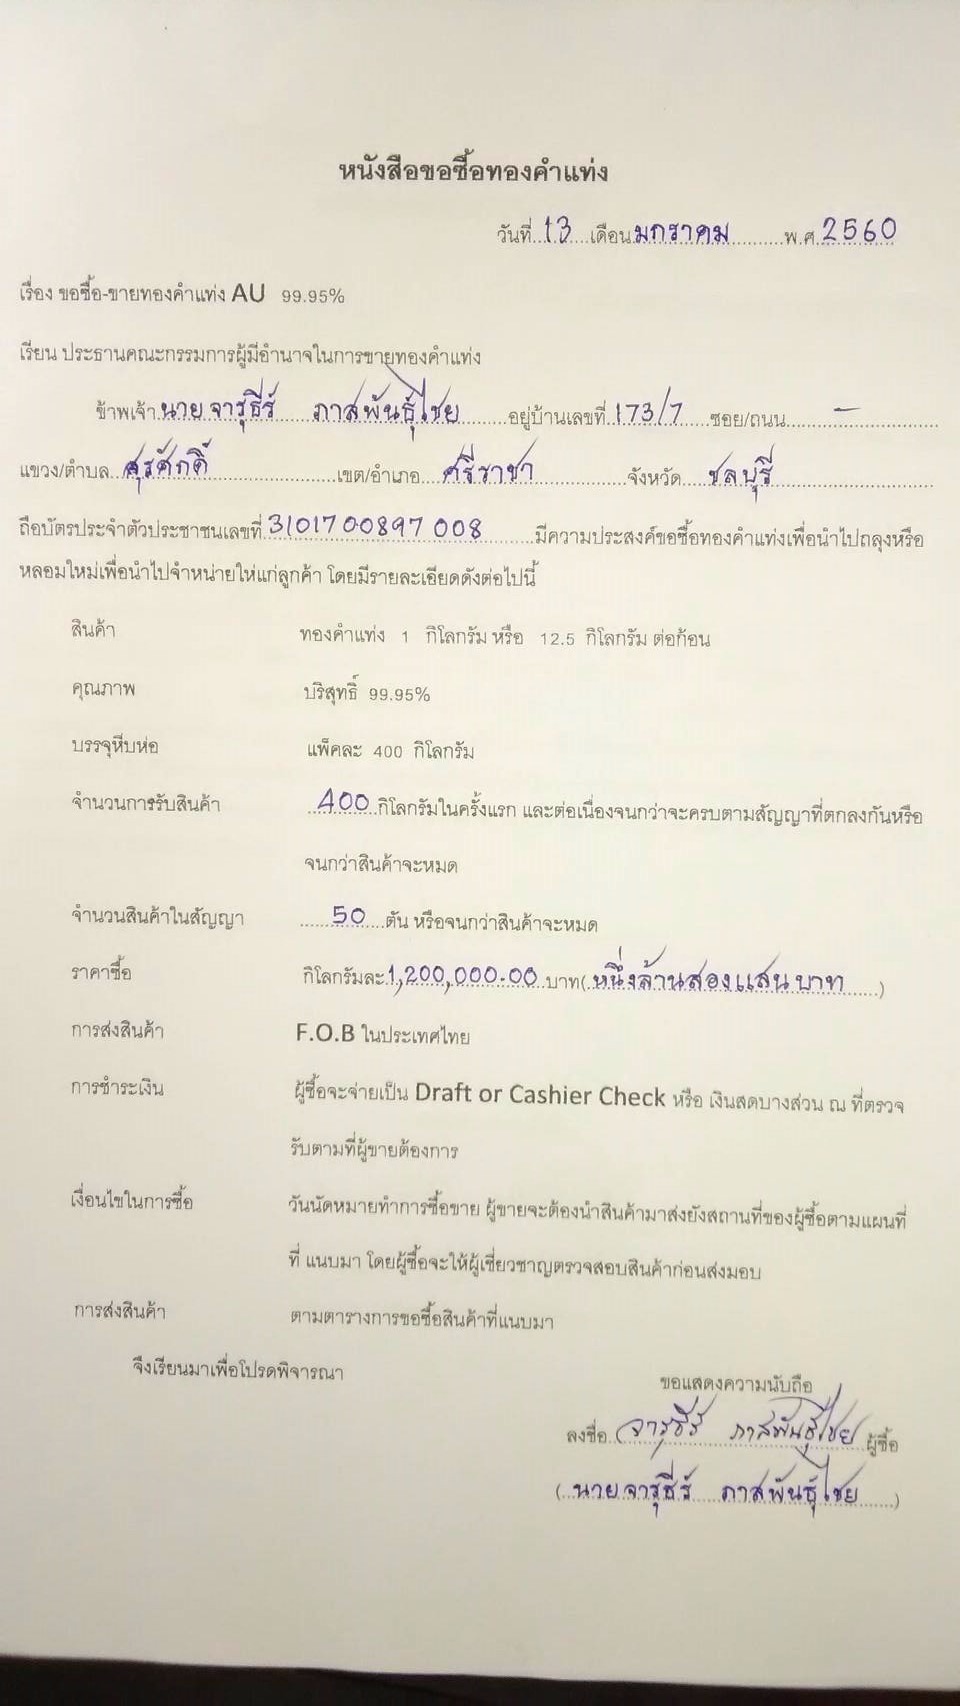 หนังสือขอซื้อทองคำแท่ง
วันที่..13...เดือน มกราคม..........พ.ศ. 2560
เรื่อง ขอซื้อ-ขายทองคำแท่ง AU 99.95%
เรียน ประธานคณะกรรมการผู้มีอำนาจในการขายทองคำแท่ง
ข้าพเจ้า นาย จารุธีร์ ภาสพันธุ์ไชย........อยู่บ้านเลขที่ 173/7 ซอย/ถนน......-..............
แขวง/ตำบล..สุรศักดิ์....................เขต/อำเภอ...ศรีราชา..............จังหวัด...ชลบุรี.......................
ถือบัตรประจำตัวประชาชนเลขที่ 3101700897008........มีความประสงค์ขอซื้อทองคำแท่งเพื่อนำไปถลุงหรือ
หลอมใหม่เพื่อนำไปจำหน่ายให่แก่ลูกค้า โดยมีรายละเอียดดังต่อไปนี้
สินค้า ทองคำแท่ง 1 กิโลกรัม หรือ 12.5 กิโลกรัม ต่อก้อน
คุณภาพ บริสุทธิ์ 99.95%
บรรจุหีบห่อ แพ็คละ 400 กิโลกรัม
จำนวนการรับสินค้า ..400..กิโลกรัมในครั้งแรก และต่อเนื่องจนกว่าจะครบตามสัญญาที่ตกลงกันหรือ
จนกว่าสินค้าจะหมด
จำนวนสินค้าในสัญญา .....50...ตัน หรือจนกว่าสินค้าจะหมด
ราคาซื้อ กิโลกรัมละ 1,200,000.00 บาท( หนึ่งล้านสองแสนบาท......)
การส่งสินค้า F.O.B ในประเทศไทย
การชำระเงิน ผู้ซื้อจะจ่ายเป็น Draft or Cashier Check หรือ เงินสดบางส่วน ณ ที่ตรวจ
รับตามที่ผู้ขายต้องการ
เงื่อนไขในการซื้อ วันนัดหมายทำการซื้อขาย ผู้ขายจะต้องนำสินค้ามาส่งยังสถานที่ของผู้ซื้อตามแผนที่
ที่ แนบมา โดยผู้ซื้อจะให้ผู้เชี่ยวชาญตรวจสอบสินค้าก่อนส่งมอบ
การส่งสินค้า ตามตารางการขอซื้อสินค้าที่แนบมา
จึงเรียนมาเพื่อโปรดพิจารณา
ขอแสดงความนับถือ
ลงชื่อ..จารุธีร์ ภาสพันธุ์ไชย ผู้ซื้อ
(..นาย จารุธีร์ ภาสพันธุ์ไชย......)